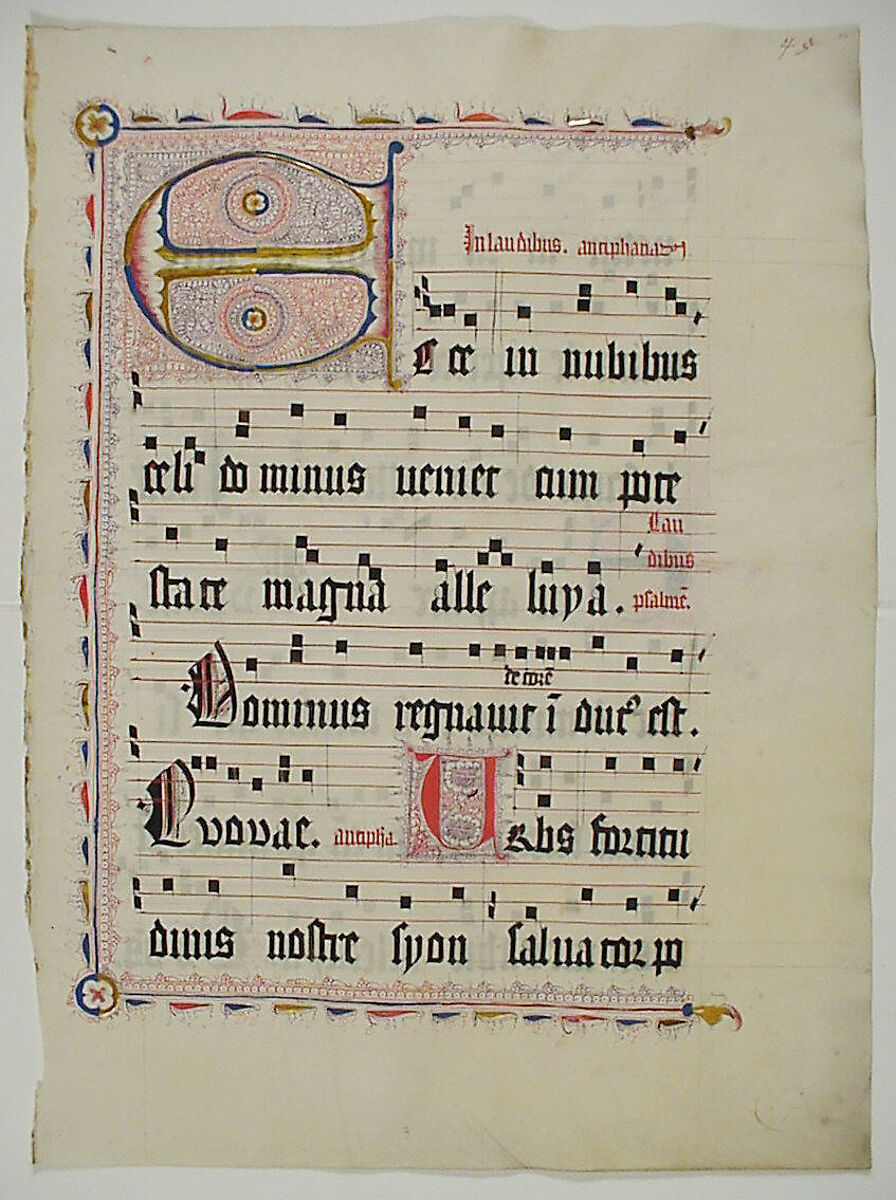 In laudibus. antiphana
Ecce in nubibus
celi dominus veniet cum pote
state magna alleluya. Lau
dibus
psalmē.
decorē
Dominus regnavit ī dut9 est.
Evovae. antipha. Urbs fortitu
dinis nostre syon salvator po